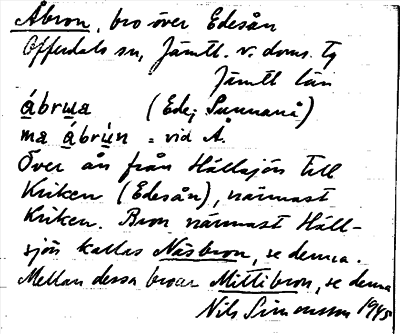 Åbron, bro över Edesån
Offerdals sn, Jämtl. v. doms. tg
Jämtl län
ábrua (Ede; Sunnanå)
ma ábrún = vid Å.
Över ån från Hällsjön till
Kriken (Edesån), närmast
Kriken. Bron närmast Häll-
sjön kallas Näsbron, se denna.
Mellan dessa broar Mittibron, se denna
Nils Simonsson 1945